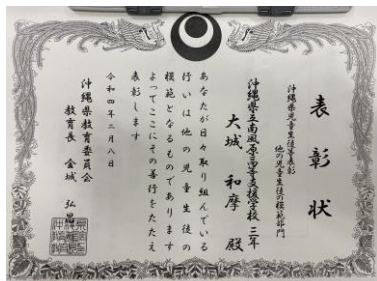 表彰状
沖縄県児童生徒等表彰
他の児童生徒の模範部門
沖縄県立南風原高等支援学校 三年
大城 和摩 殿
あなたが日々取り組んでいる
行いは他の児童生徒の
模範となるものであります
よってここにその善行をたたえ
表彰します
令和四年二月八日
沖縄県教育委員会
教育長 金城 弘昌